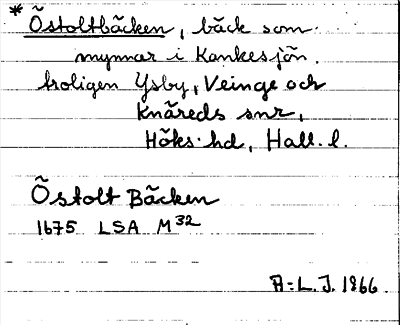 * Östoltbäcken, bäck som
mynnar i Kankesjön.
troligen Ysby, Veinge och
Knäreds snr,
Höks hd, Hall. l.
Östolt Bäcken
1675 LSA M32
A=L. J. 1966.